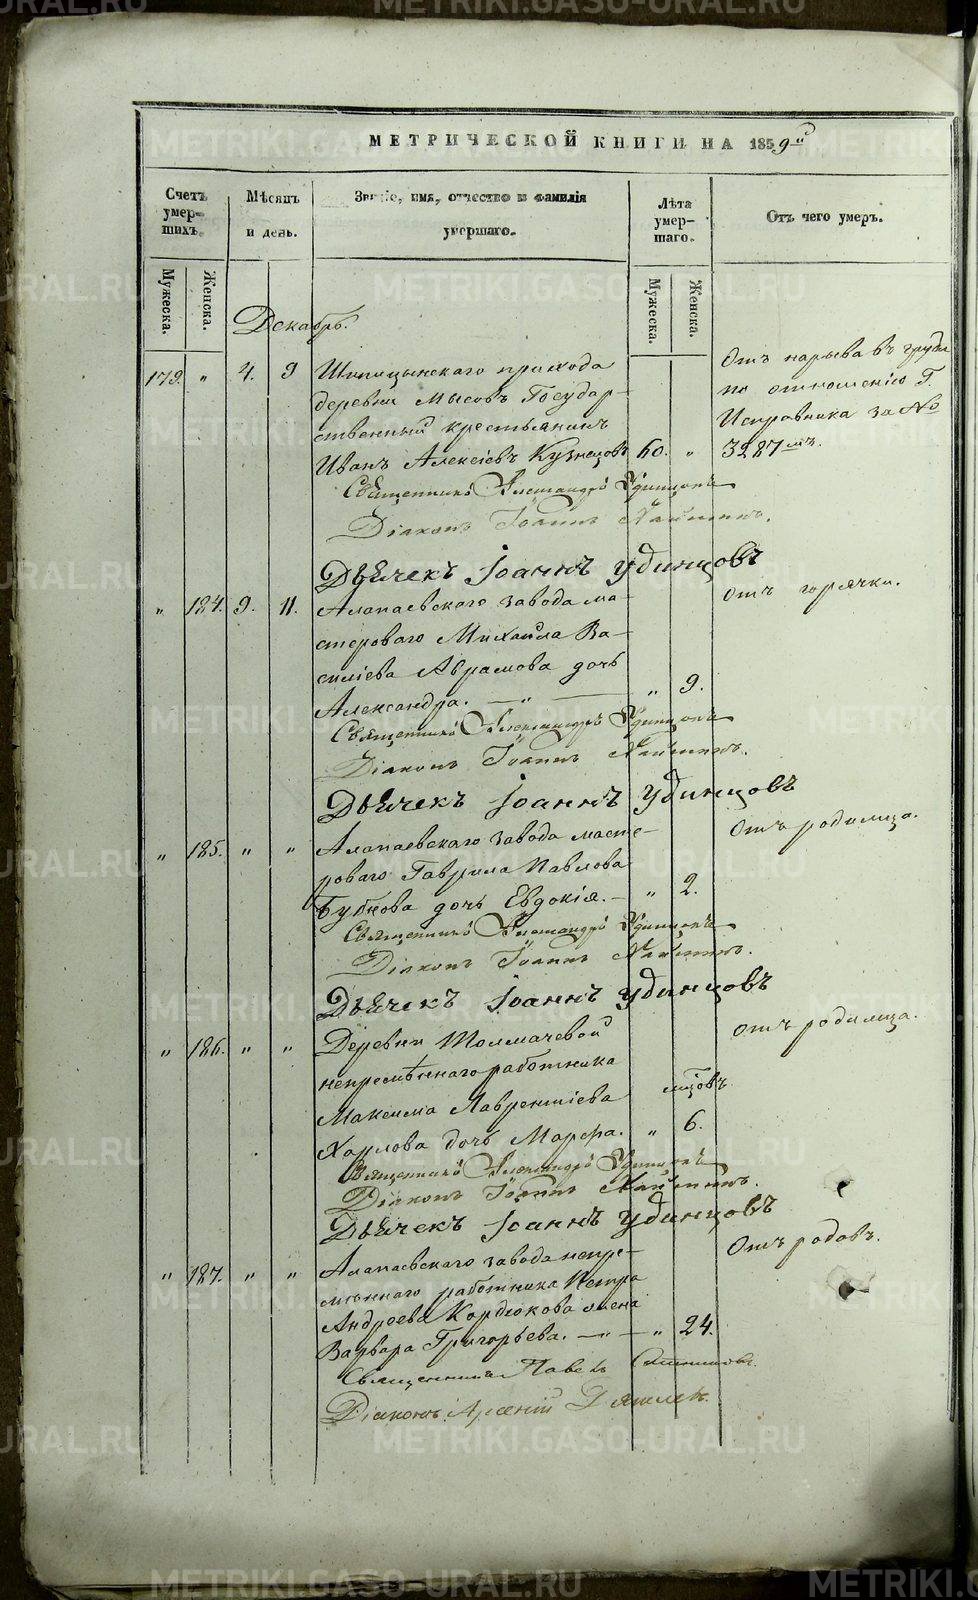 METRIKI.GASO-URAL.RU
МЕТРИЧЕСКОЙ КНИГИ НА 1859й
Счетъ умер-
шихъ.
Мѣсяцъ
и день.
Званіе, имя, отчество и фамилія
умершаго.
Лѣта
умер-
шаго.
Отъ чего умеръ.
Мужеска.
Женска.
Мужеска.
Женска.
Декабрь.
179. " 4. 9 Шипицынскаго прихода
деревни Мысовъ Государ-
ственный крестьянинъ
Иванъ Алексіевъ Кузнецовъ 60. "
Отъ нарыва въ груди
по отношенію Г.
Исправника за №
3287мъ.
Священникъ Александръ Удинцовъ
Діаконъ Іоаннъ
Дьячекъ Іоаннъ Удинцовъ
" 184. 9. 11. Алапаевскаго завода ма-
стероваго Михаила Ва-
силіева Абрамова дочь
Александра. — " — " 9.
Отъ горячки.
Священникъ Александръ Удинцовъ
Діаконъ Іоаннъ
Дьячекъ Іоаннъ Удинцовъ
" 185. " " Алапаевскаго завода масте-
роваго Гаврила Павлова
Бубнова дочь Евдокія. — " 2.
Отъ родимца.
Священникъ Александръ Удинцовъ
Діаконъ Іоаннъ
Дьячекъ Іоаннъ Удинцовъ
" 186. " " Деревни Толмачевой
непремѣннаго работника
Максима Лаврентіева
мцовъ
Харлова дочь Марфа. " 6.
Отъ родимца.
Священникъ Александръ Удинцовъ
Діаконъ Іоаннъ
Дьячекъ Іоаннъ Удинцовъ
" 187. " " Алапаевскаго завода непре-
мѣннаго работника Петра
Андреева Кордюкова жена
Варвара Григорьева. — " — " 24.
Отъ родовъ.
Священникъ Павелъ
Діаконъ Арсеній